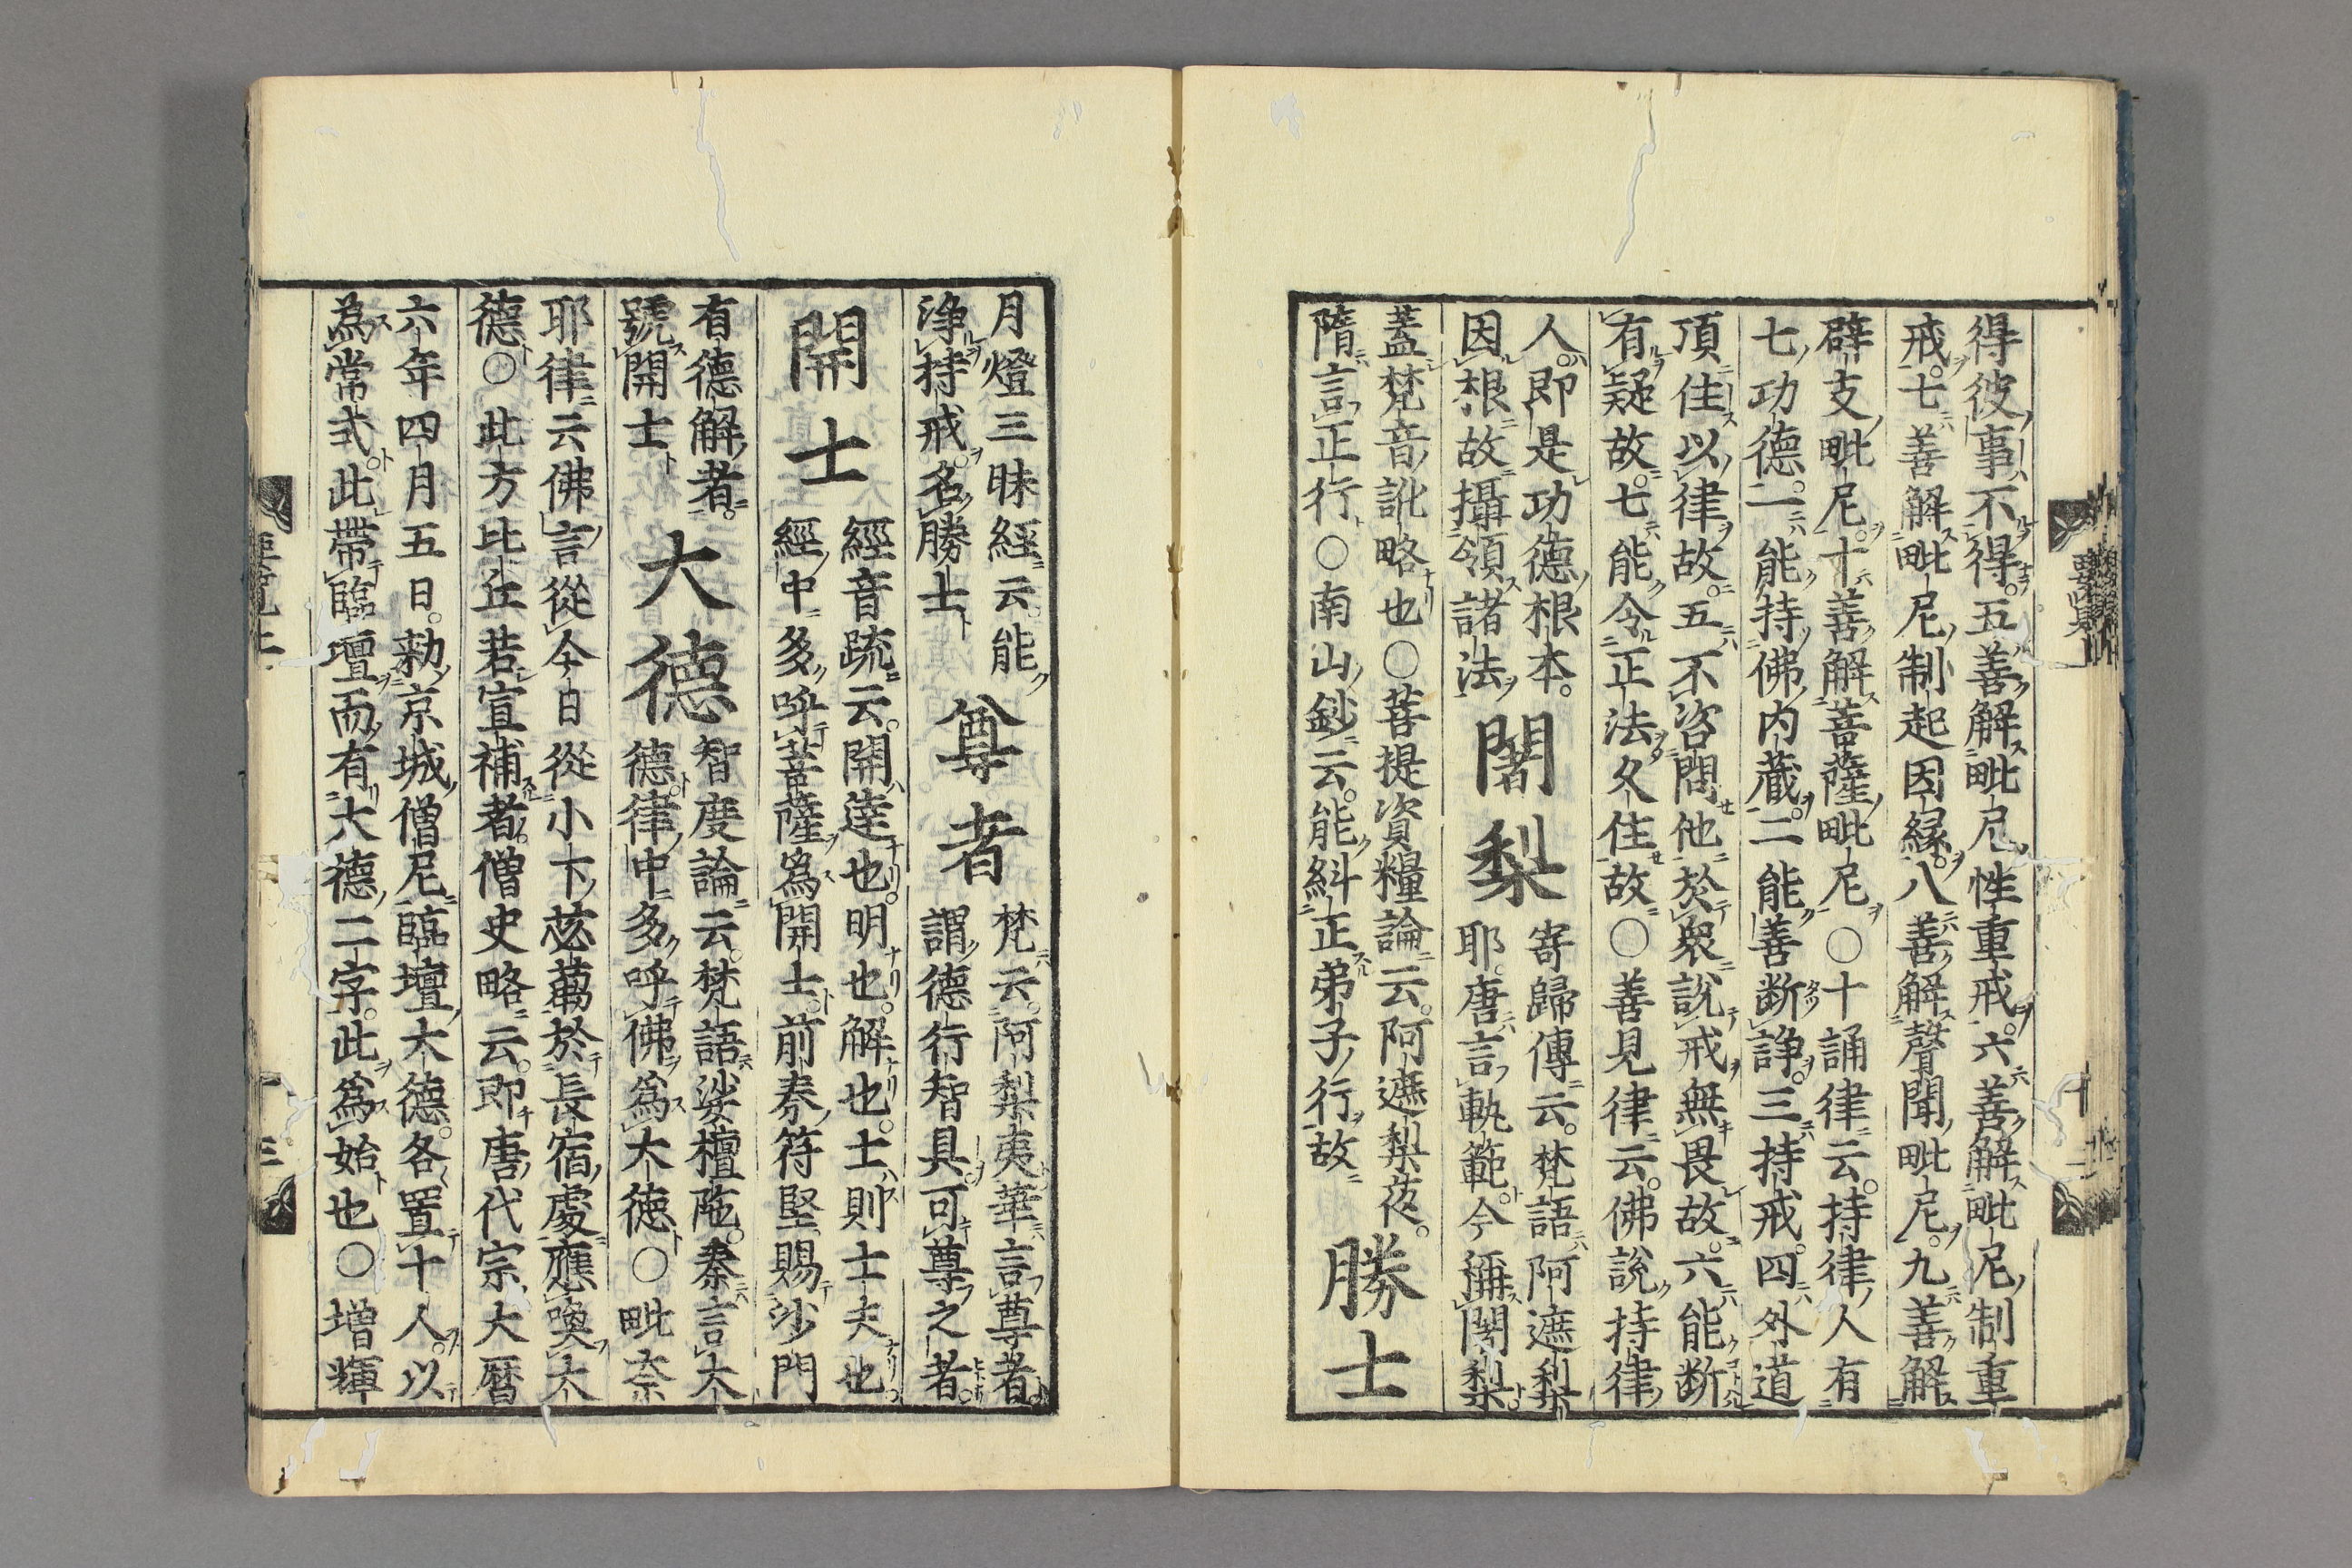 得彼事不得五善解毗尼性重戒六善解毗尼制重
戒七善解毗尼制起因縁八善解聲聞毗尼九善解
辟支毗尼十善解菩薩毗尼〇十誦律云持律人有
七功德一能持佛内藏二能善断諍三持戒四外道
頂住以律故五不咨問他於衆說戒無畏故六能断
有疑故七能令正法久住故〇善見律云佛說持律
人即是功德根本
因根故攝領諸法
闍梨
寄歸傳云梵語阿遮梨
耶唐言軌範今稱闍梨
蓋梵音訛略也〇菩提資糧論云阿遮梨夜
隋言正行〇南山鈔云能糾正弟子行故
勝士
月燈三昧經云能
浄持戒名勝士
尊者
梵云阿梨夷華言尊者
謂德行智具可尊之者
開士
經音䟽云開達也明也解也士則士夫也
經中多呼菩薩爲開士前秦符堅賜沙門
有德解者
號開士
大德
智度論云梵語娑檀陁秦言大
德律中多呼佛爲大德〇毗奈
耶律云佛言從今日從小下苾蒭於長宿處應喚大
德〇此方比丘若宣補者僧史略云即唐代宗大曆
六年四月五日勑京城僧尼臨壇大德各置十人以
為常式此帶臨壇而有大德二字此爲始也〇增輝
要覧上
十三